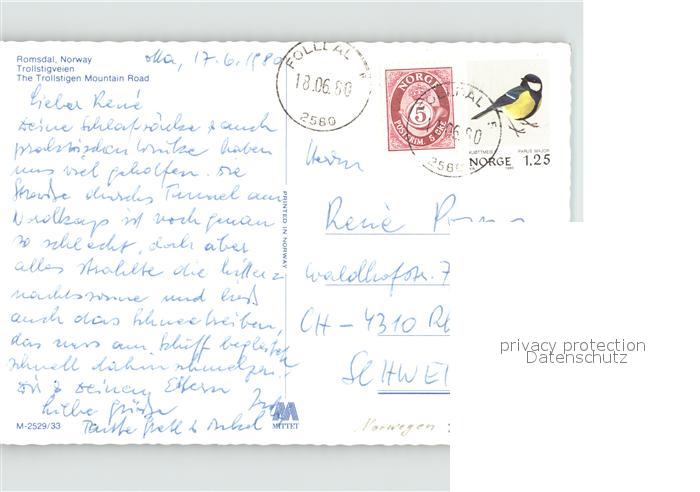 Romsdal, Norway
Trollstigveien
The Trollstigen Mountain Road
17.6.1980
Lieber René
Deine Schlafsäcke & auch
haben
uns viel geholfen. Die
Strasse durchs Tunnel am
Nordkap ist noch genau
so schlecht, doch aber
alles strahlte die Mitter-
nachtssonne und liess
auch das Schneetreiben,
das uns am Schiff begleitete
schnell dahin schmelzen.
Dir & Deinen Eltern
Liebe Grüsse
Tante &
M-2529/33
PRINTED IN NORWAY
MITTET
FOLLDAL
18.06.80
2580
NORGE
5
POSTFRIM. 5 ØRE
FOLLDAL
06.80
2580
KJØTTMEIS
PARUS MAJOR
NORGE 1.25
Herrn
René
Waldhofstr. 7
CH - 4310 Rh
SCHWEI
Norwegen
privacy protection
Datenschutz